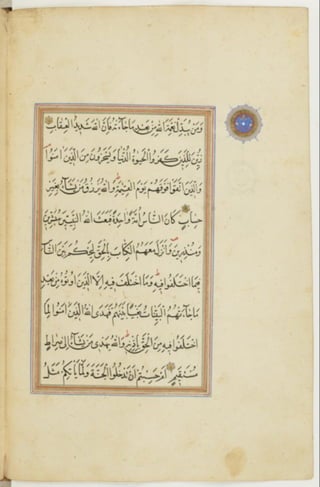 وَمَن يُبَدِّلْ نِعْمَةَ اللَّهِ مِن بَعْدِ مَا جَاءَتْهُ فَإِنَّ اللَّهَ شَدِيدُ الْعِقَابِ
زُيِّنَ لِلَّذِينَ كَفَرُوا الْحَيَوةُ الدُّنْيَا وَيَسْخَرُونَ مِنَ الَّذِينَ آمَنُوا
وَالَّذِينَ اتَّقَوْا فَوْقَهُمْ يَوْمَ الْقِيَمَةِ وَاللَّهُ يَرْزُقُ مَن يَشَاءُ بِغَيْرِ
حِسَابٍ كَانَ النَّاسُ أُمَّةً وَاحِدَةً فَبَعَثَ اللَّهُ النَّبِيِّينَ مُبَشِّرِينَ
وَمُنذِرِينَ وَأَنزَلَ مَعَهُمُ الْكِتَابَ بِالْحَقِّ لِيَحْكُمَ بَيْنَ النَّاسِ
فِيمَا اخْتَلَفُوا فِيهِ وَمَا اخْتَلَفَ فِيهِ إِلَّا الَّذِينَ أُوتُوهُ مِن بَعْدِ
مَا جَاءَتْهُمُ الْبَيِّنَاتُ بَغْيًا بَيْنَهُمْ فَهَدَى اللَّهُ الَّذِينَ آمَنُوا لِمَا
اخْتَلَفُوا فِيهِ مِنَ الْحَقِّ بِإِذْنِهِ وَاللَّهُ يَهْدِي مَن يَشَاءُ إِلَى صِرَاطٍ
مُسْتَقِيمٍ أَمْ حَسِبْتُمْ أَن تَدْخُلُوا الْجَنَّةَ وَلَمَّا يَأْتِكُم مَثَلُ